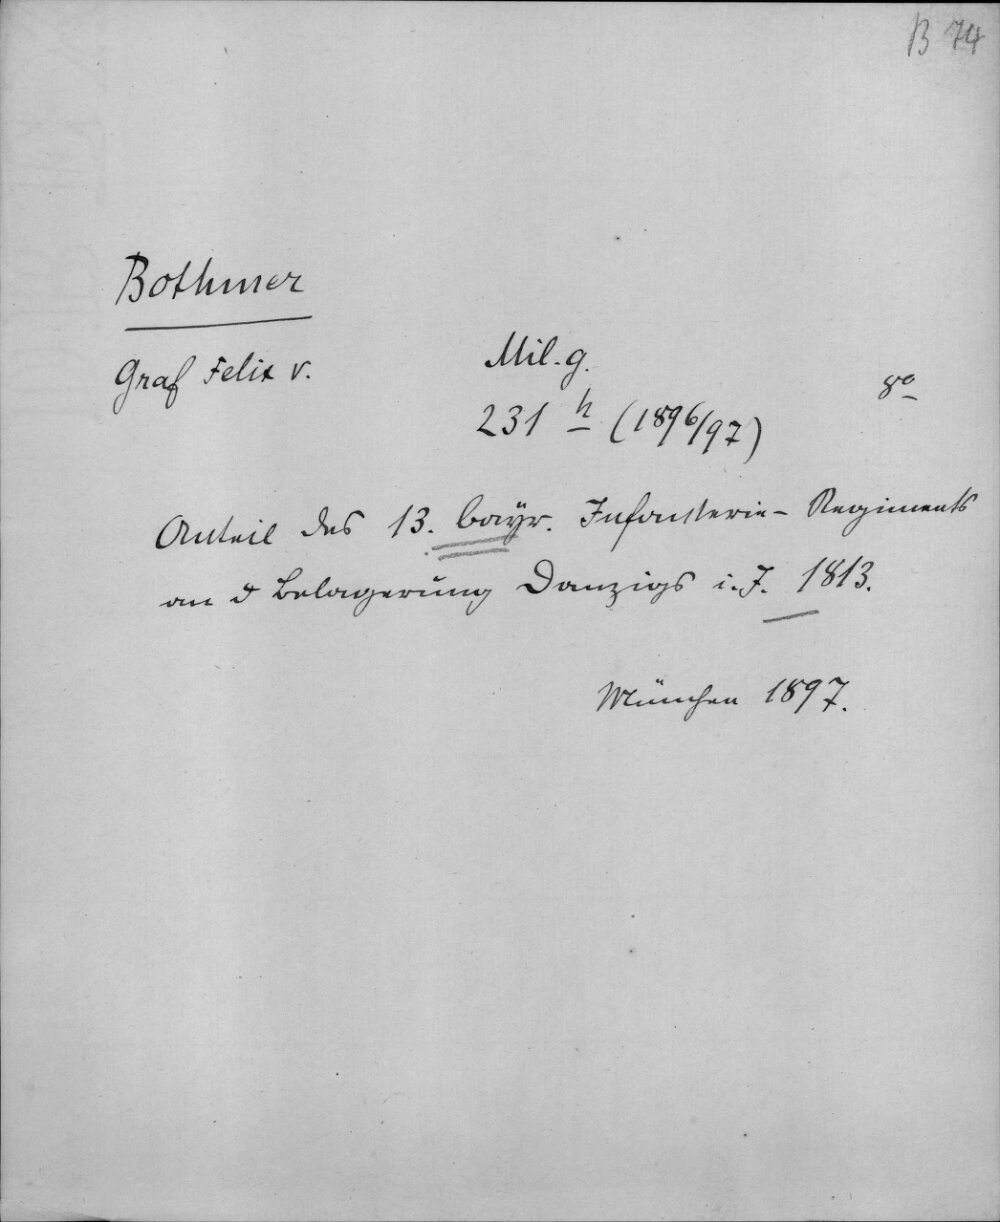 B 74
Bothmer
Graf Felix v.
Mil. g.
8°
231 h (1896/97)
Anteil des 13. bayr. Infanterie- Regiments
an d Belagerung Danzigs i. J. 1813.
München 1897.